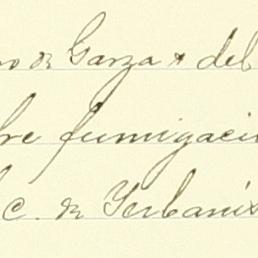 no de Garza * del
bre fumigació
C. de Yerbaniz